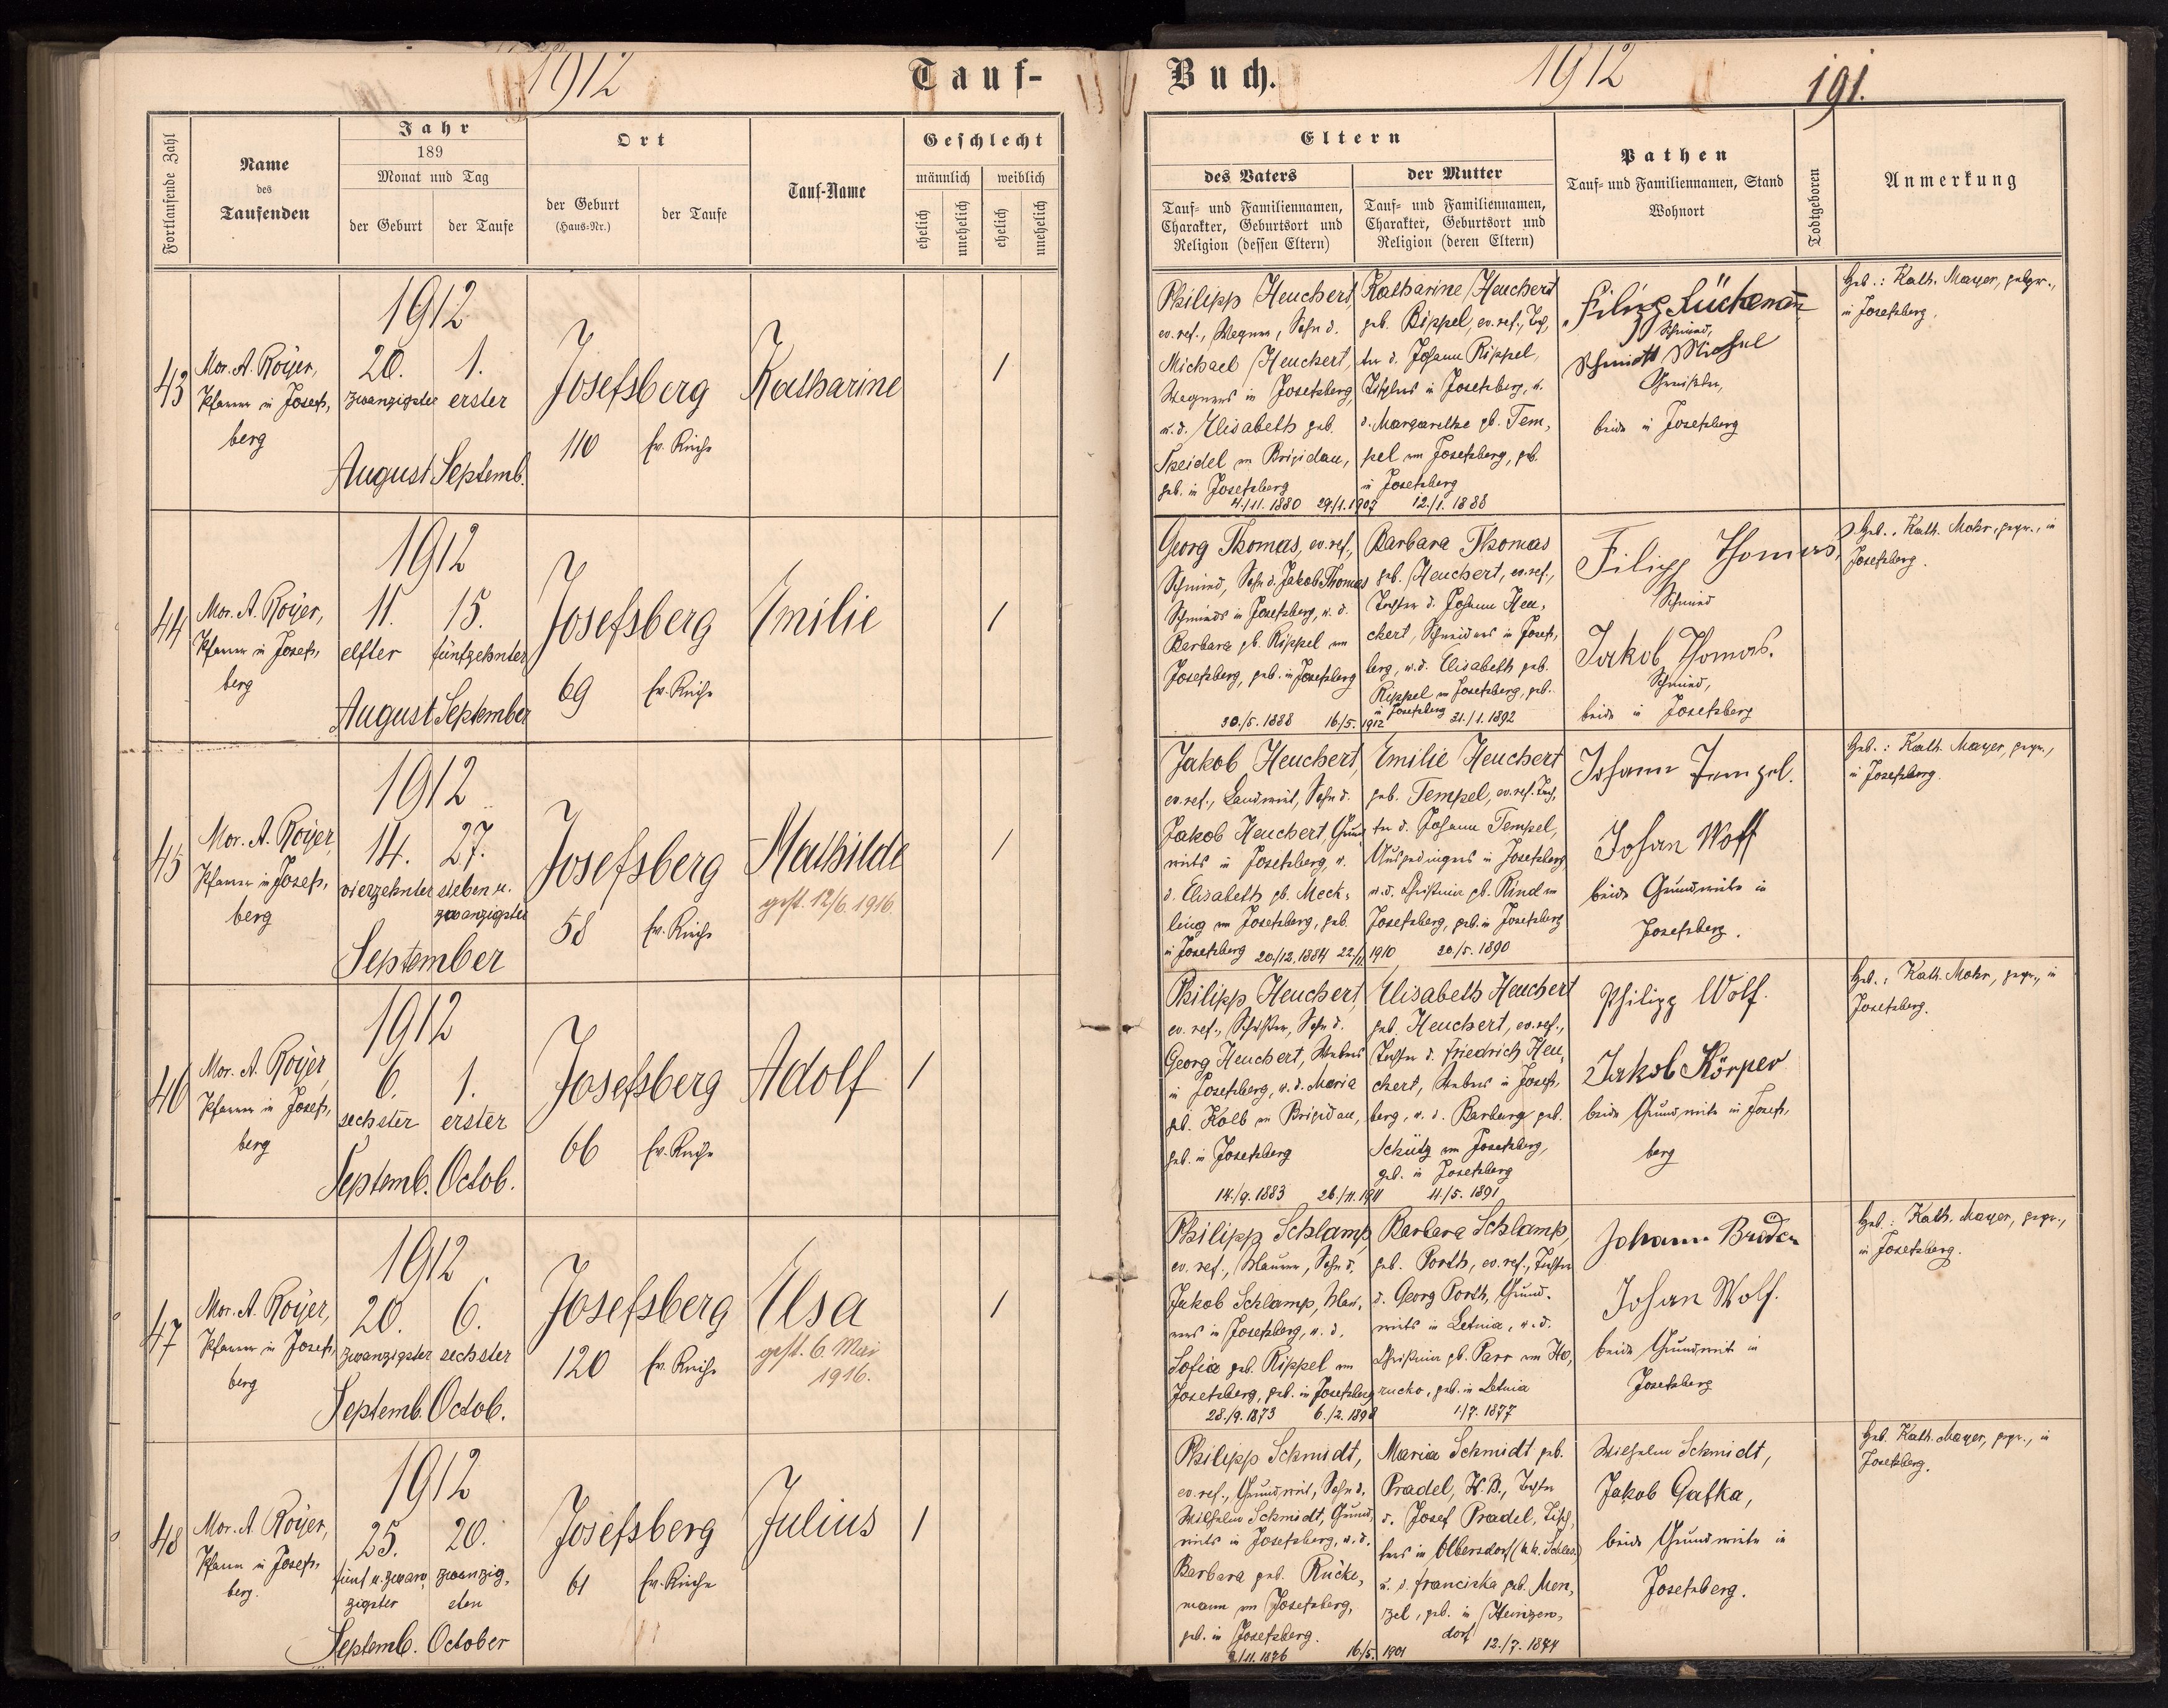 1912
Tauf-
Buch.
1912
191.
Fortlaufende Zahl
Name
des
Taufenden
Jahr
189
Monat und Tag
der Geburt
der Taufe
Ort
der Geburt
(Haus-Nr.)
der Taufe
Tauf-Name
Geschlecht
männlich
weiblich
ehelich
unehelich
ehelich
unehelich
Eltern
des Vaters
Tauf- und Familiennamen,
Charakter, Geburtsort und
Religion (dessen Eltern)
der Mutter
Tauf- und Familiennamen,
Charakter, Geburtsort und
Religion (deren Eltern)
Pathen
Tauf- und Familiennamen, Stand
Wohnort
Todtgeboren
Anmerkung
43
Mor. A. Royer,
Pfarrer in Josefs,
berg
1912
20.
zwanzigster
August
1.
erster
Septemb.
Josefsberg
110
Ev. Kirche
Katharine
/
Philipp Heuchert,
ev. ref., Wagner, Sohn d.
Michael Heuchert,
Wagners in Josefsberg,
u. d. Elisabeth geb.
in Brigidau,
geb. in Josefsberg
4./11. 1880 29/1. 1907
Katharine Heuchert
geb. Rippel, ev. ref., Toch,
ter d. Johann Rippel,
Tischlers in Josefsberg, u.
d. Margarethe gb. Tem,
pel in Josefsberg, gb.
in Josefsberg
12./1. 1888
Schmied,
beide in Josefsberg
Heb.: Kath. Mayer, gepr.,
in Josefsberg.
44
Mor. A. Royer,
Pfarrer in Josefs,
berg
1912
11.
elfter
August
15.
fünfzehnter
September
Josefsberg
69
Ev. Kirche
Emilie
/
Georg Thomas, ev. ref.,
Schmied, Sohn d. Jakob Thomas
Schmieds in Josefsberg, u. d.
Barbara gb. Rippel in
Josefsberg, geb. in Josefsberg
30./5. 1888 16./5. 1912
Barbara Thomas
geb. Heuchert, ev. ref.,
Tochter d. Johann Heu,
chert, Schneiders in Josefs,
berg, u. d. Elisabeth geb.
Rippel in Josefsberg, geb.
in Josefsberg 21./1. 1892
Filipp Thomas,
Schmied
Jakob Thomas.
Schmied,
beide in Josefsberg
Heb.: Kath. Mohr, gepr., in
Josefsberg.
45
Mor. A. Royer,
Pfarrer in Josefs,
berg
1912
14.
vierzehnter
27.
sieben u.
zwanzigster
September
Josefsberg
58
Ev. Kirche
Mathilde
gest. 12/6. 1916.
/
Jakob Heuchert,
ev. ref., Landwirt, Sohn d.
Jakob Heuchert, Grund
wirts in Josefsberg, u.
d. Elisabeth gb. Meck,
ling in Josefsberg, geb.
in Josefsberg 20./12. 1884 22/11 1910
Emilie Heuchert
geb. Tempel, ev. ref. Toch,
ter d. Johann Tempel,
Ausgedingers in Josefsberg
u. d. Christina gb. Rind in
Josefsberg, geb. in Josefsberg
20./5. 1890
Johann Tempel.
Johan Wolf
beide Grundwirte in
Josefsberg.
Heb.: Kath. Mayer, gepr.,
in Josefsberg.
46
Mor. A. Royer,
Pfarrer in Josefs,
berg
1912
6.
sechster
Septemb.
1.
erster
Octob.
Josefsberg
66
Ev. Kirche
Adolf
/
Philipp Heuchert,
ev. ref., Schuster, Sohn d.
Georg Heuchert, Webers
in Josefsberg, u. d. Maria
gb. Kolb in Brigidau,
geb. in Josefsberg
14./9. 1883 26./11. 1911
Elisabeth Heuchert
geb. Heuchert, ev. ref.,
Tochter d. Friedrich Heu,
chert, Webers in Josefs,
berg, u. d. Barbara geb.
Schütz in Josefsberg,
geb. in Josefsberg
11./5. 1891
Philipp Wolf.
Jakob Körper
beide Grundwirte in Josefs,
berg
Heb.: Kath. Mohr, gepr., in
Josefsberg.
47
Mor. A. Royer,
Pfarrer in Josefs,
berg
1912
20.
zwanzigster
Septemb.
6.
sechster
Octob.
Josefsberg
120
Ev. Kirche
Elsa
gest. 6. Mai
1916.
/
Philipp Schlamp,
ev. ref., Maurer, Sohn d.
Jakob Schlamp, Mau,
rers in Josefsberg, u. d.
Sofia geb. Rippel in
Josefsberg, geb. in Josefsberg
28./9. 1873 6./2. 1898
Barbara Schlamp,
geb. Porth, ev. ref., Tochter
d. Georg Porth, Grund,
wirts in Letnia, u. d.
Christina gb. Parr in Ho,
rucko, geb. in Letnia
1./7. 1877
Johann
Johan Wolf.
beide Grundwirte in
Josefsberg
Heb.: Kath. Mayer, gepr.,
in Josefsberg.
48
Mor. A. Royer,
Pfarrer in Josefs,
berg.
1912
25.
fünf u. zwan,
zigster
Septemb.
20.
zwanzig,
sten
October
Josefsberg
61
Ev. Kirche
Julius
/
Philipp Schmidt,
ev. ref., Grundwirt, Sohn d.
Wilhelm Schmidt, Grund,
wirts in Josefsberg, u. d.
Barbara geb. Rücke,
mann in Josefsberg,
geb. in Josefsberg.
2/11. 1876 16/5. 1901
Maria Schmidt geb.
Pradel, H. B., Tochter
d. Josef Pradel, Tisch,
lers in Olbersdorf (k. k. Schles.)
u. d. Franciska geb. Men,
zel, geb. in Heinzen,
dorf 12./7. 1874
Wilhelm Schmidt,
Jakob Gafka,
beide Grundwirte in
Josefsberg.
Heb. Kath. Mayer, gepr., in
Josefsberg.